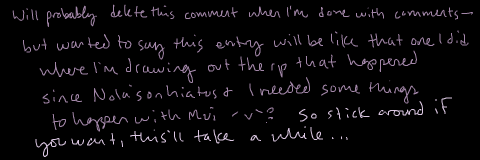 Will probably delete this comment when I'm done with comments—
but wanted to say this entry will be like that one I did
where I'm drawing out the rp that happened
since Nola's on hiatus & I needed some things
to happen with Mui ^v^; So stick around if
you want, this'll take a while...